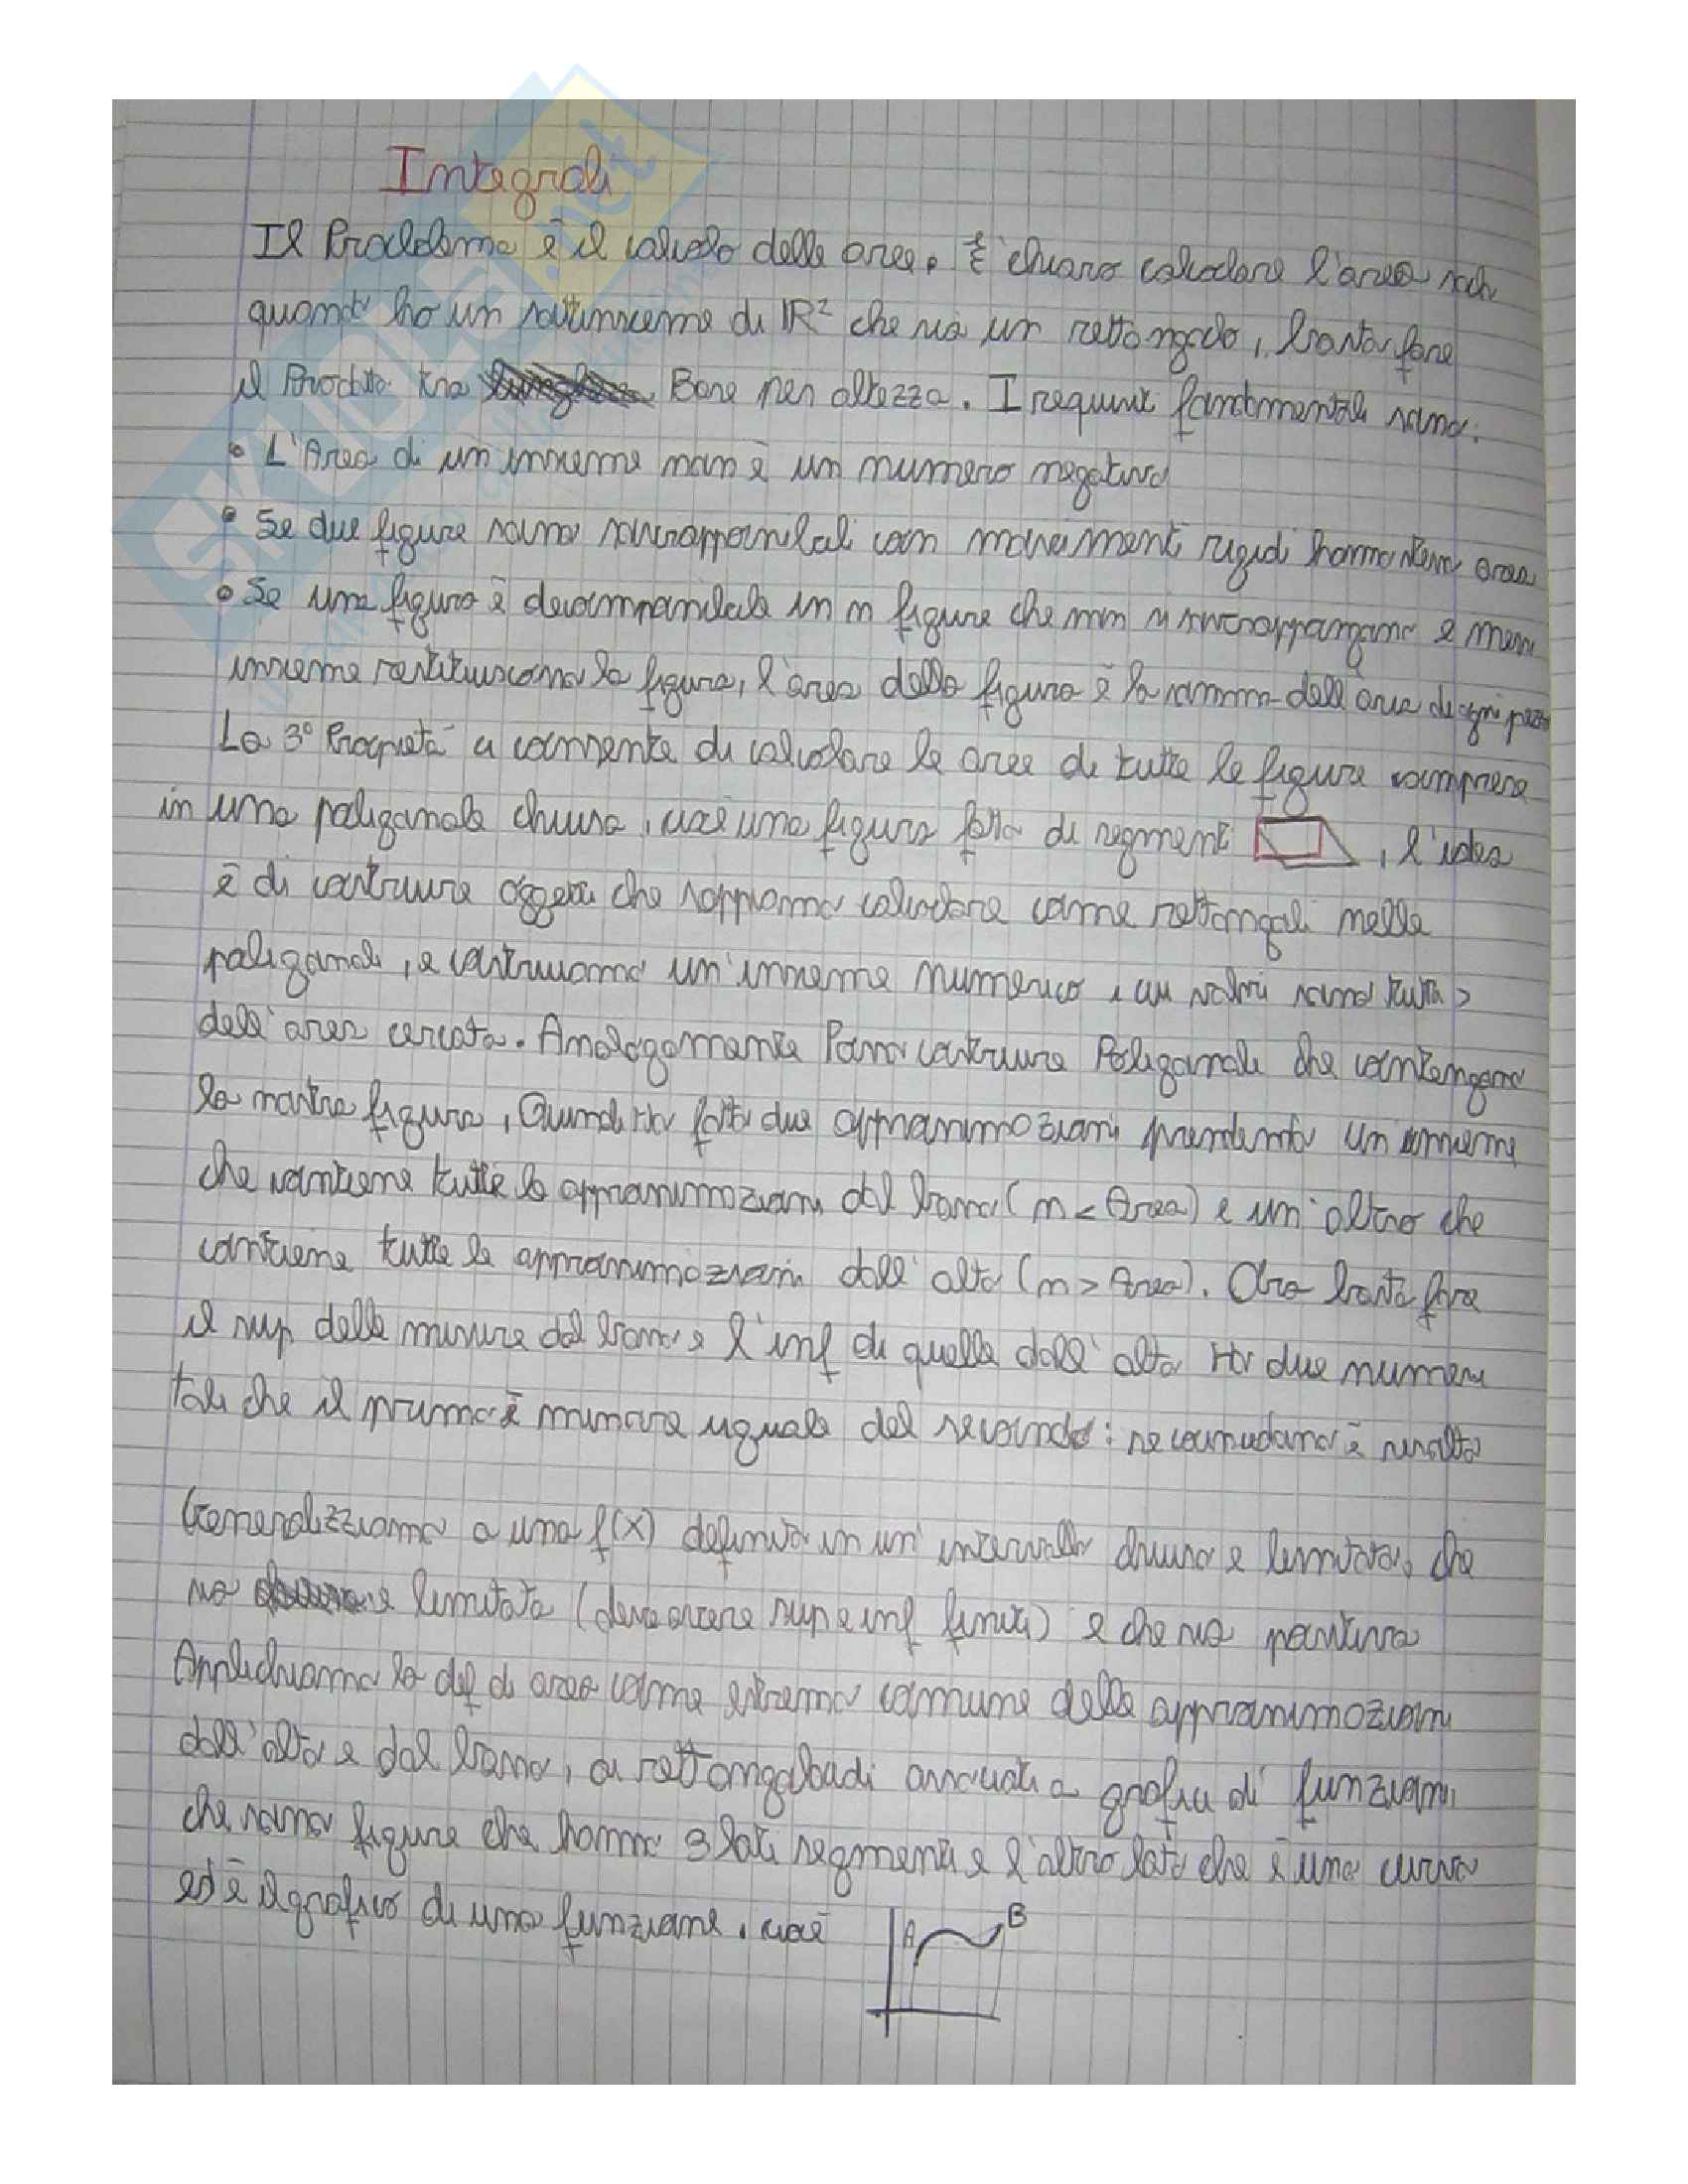 Integrali
Il Problema è il calcolo delle aree. È chiaro calcolare l'area solo
quando ho un sottinsieme di ℝ² che sia un rettangolo, basta fare
il Prodotto tra Base per altezza. I requisiti fondamentali sono:
• L'Area di un insieme non è un numero negativo
• Se due figure sono sovrapponibili con movimenti rigidi hanno stessa area
• Se una figura è decomponibile in n figure che non si sovrappongono e messe
insieme restituiscono la figura, l'area della figura è la somma dell'area di ogni pezzo
La 3° Proprietà ci consente di calcolare le aree di tutte le figure comprese
in una poligonale chiusa, cioè una figura fatta di segmenti , l'idea
è di costruire oggetti che sappiamo calcolare come rettangoli nelle
poligonali, e costruiamo un'insieme numerico i cui valori sono tutti >
dell'area cercata. Analogamente Posso costruire Poligonali che contengono
la nostra figura, Quindi Ho fatto due approssimazioni prendendo un insieme
che contiene tutte le approssimazioni dal basso (n < Area) e un'altro che
contiene tutte le approssimazioni dall'alto (n > Area). Ora basta fare
il sup delle misure dal basso e l'inf di quelle dall'alto Ho due numeri
tali che il primo è minore uguale del secondo: se coincidono è risolto
Generalizziamo a una f(x) definita in un'intervallo chiuso e limitato, che
sia e limitata (deve avere sup e inf finiti) e che sia positiva
Applichiamo la def di area come estremo comune delle approssimazioni
dall'alto e dal basso, ai rettangoloidi associati a grafici di funzioni,
che sono figure che hanno 3 lati segmenti e l'altro lato che è una curva
ed è il grafico di una funzione, cioè
A
B
SKUOLA.net